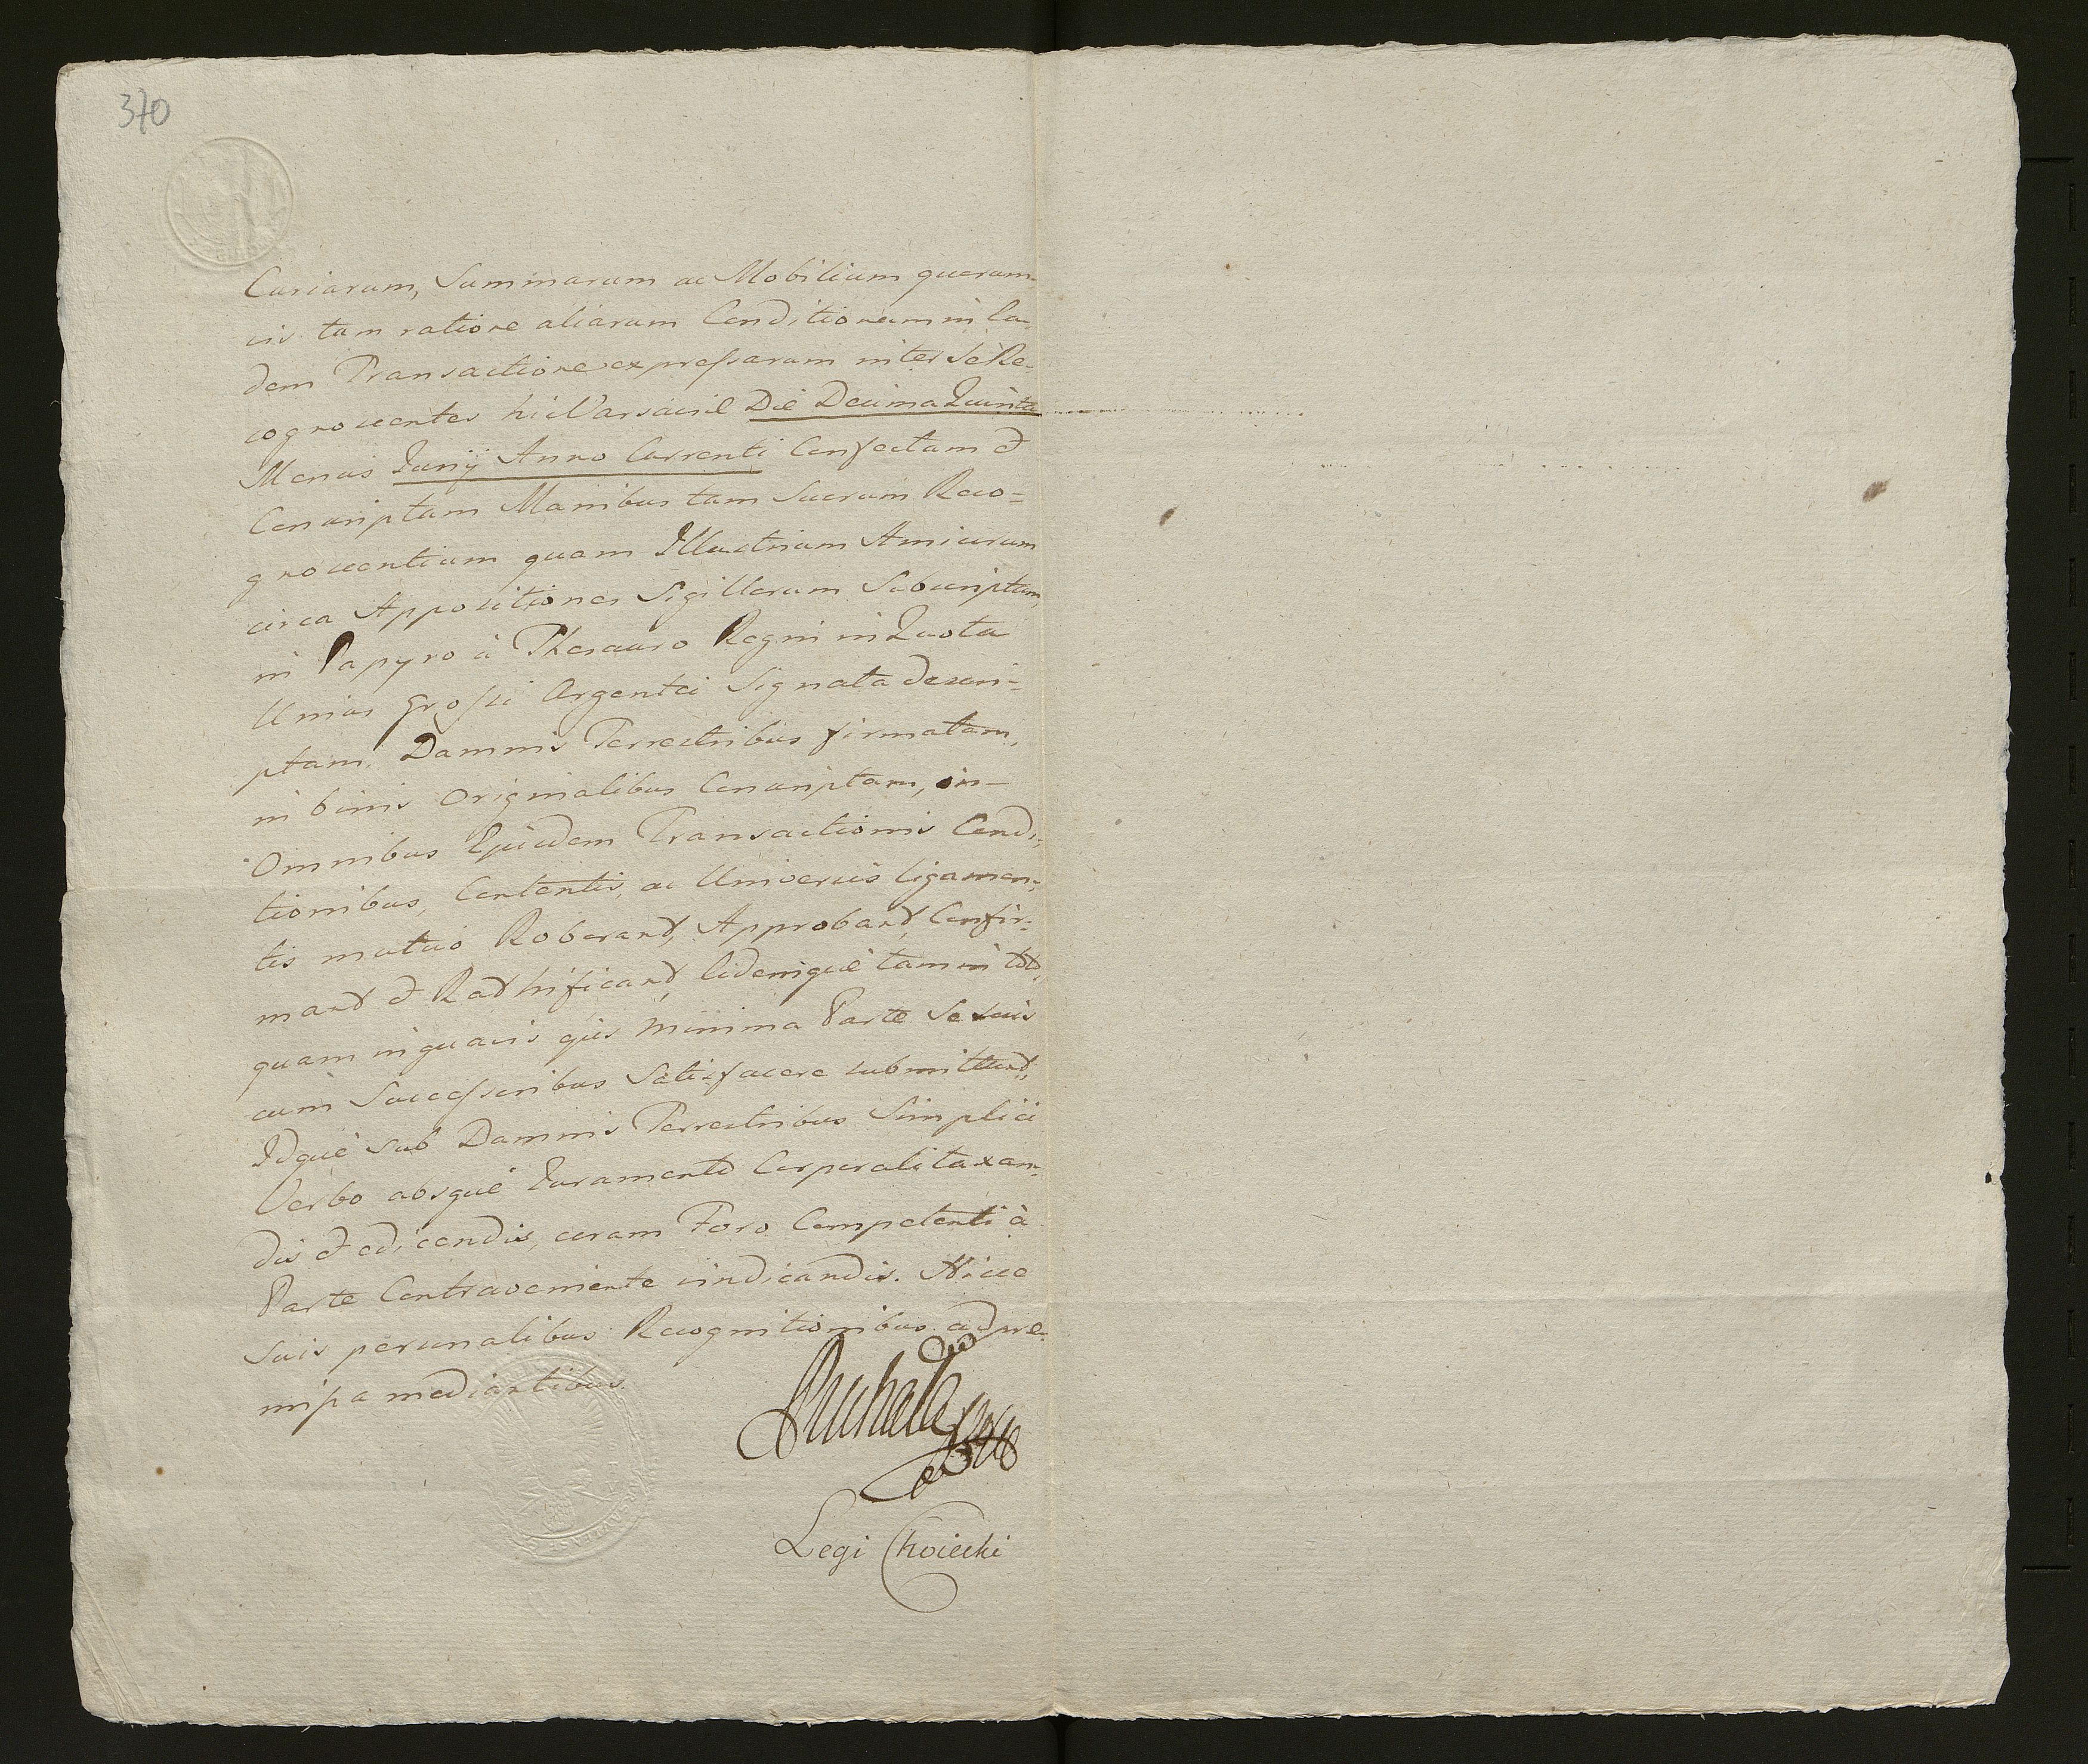 370
Curiarum, Summarum ac Mobilium quorum-
vis tam ratione aliarum Conditionum in Ea-
dem Transactione expressarum inter se Re-
cognoscentes hic Varsaviæ Die Decima Quinta
Mensis Junij Anno Currenti Confectam et
Conscriptam Manibus tam Suorum Reco=
gnoscentium quam Illustrium Amicorum
circa Appositiones Sigillorum Subscriptam,
in Papyro à Thesauro Regni in Quota
Unius Grossi Argentei Signata descri=
ptam, Damnis Terrestribus firmatam,
in binis Originalibus Conscriptam, in-
Omnibus Ejusdem Transactionis Condi-
tionibus, Contentis, ac Universis ligamen-
tis mutuó Roborand, Approband, Confir-
mand et Radhificand, Eidemquè tam in toto,
quam in quavis ejus minima Parte Se suis
cum Successoribus Satisfacere submittend,
Idquè sub Damnis Terrestribus Simplici
Verbo absquè Juramento Corporali taxan-
dis et edicendis, coram Foro Competenti à
Parte Contraveniente vindicandis. Hisce
Suis personalibus Recognitionibus ad præ-
missa mediantibus.
Legi Choiecki